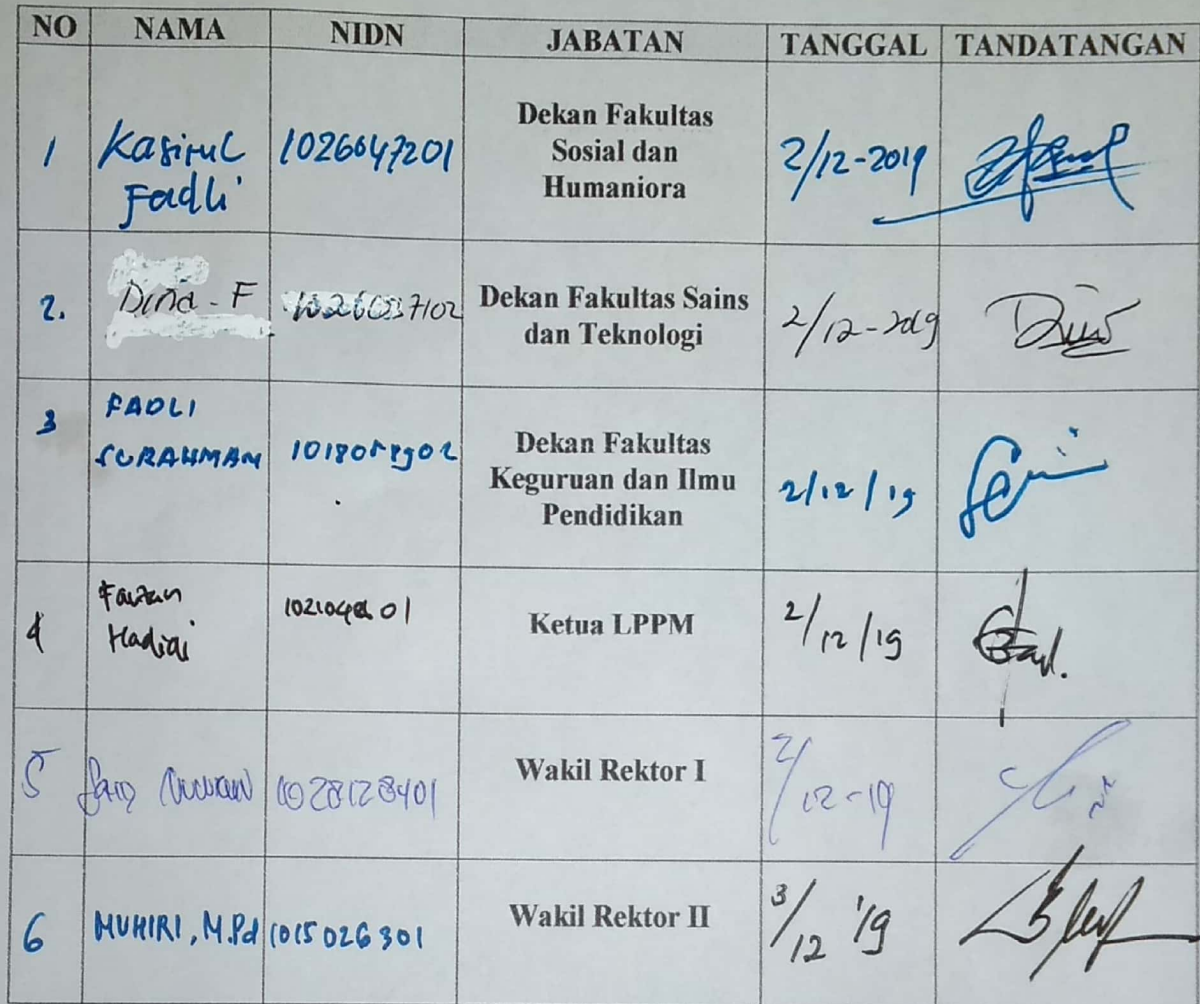 NO NAMA NIDN JABATAN TANGGAL TANDATANGAN
1 Kasirul Fadli 1026047201 Dekan Fakultas Sosial dan Humaniora 2/12-2019
2. Dina - F Dekan Fakultas Sains dan Teknologi 2/12-2019
3 FADLI SURAHMAN Dekan Fakultas Keguruan dan Ilmu Pendidikan 2/12/19
4 Fauzan Hadidi Ketua LPPM 2/12/19
5 1028128401 Wakil Rektor I 2/12-19
6 MUHIRI, M.Pd 1015026301 Wakil Rektor II 3/12 '19